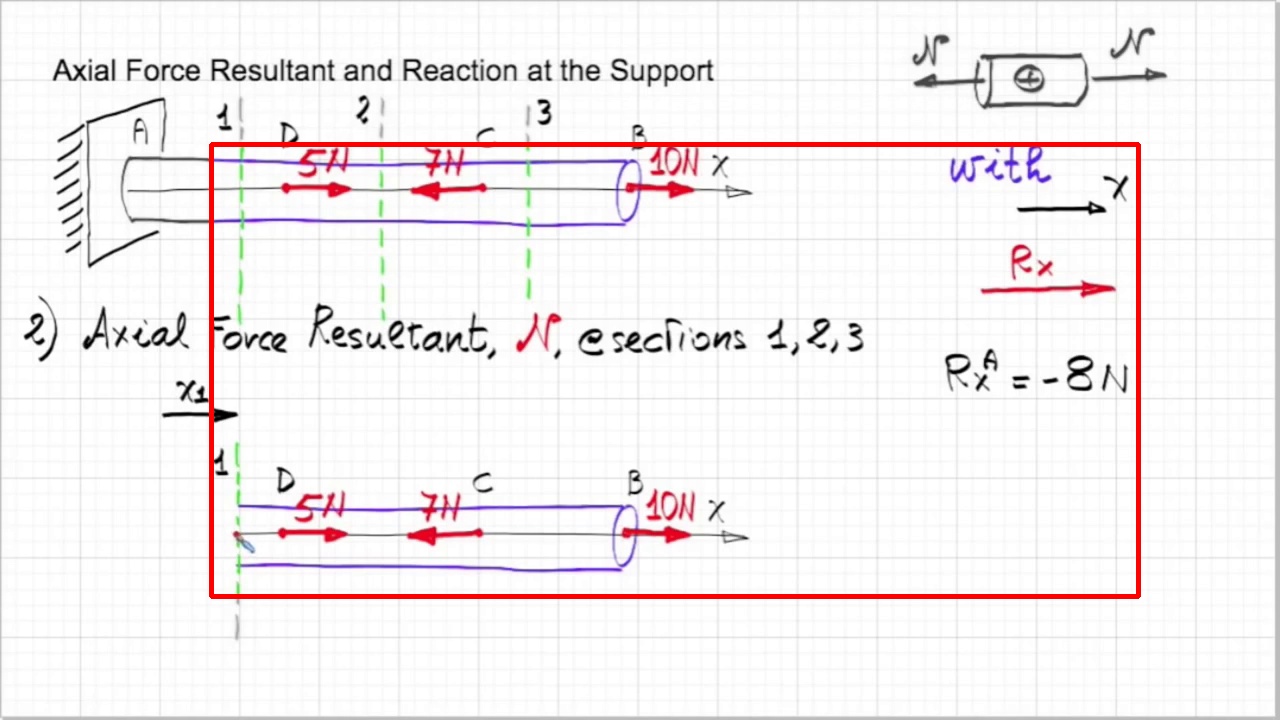 Axial Force Resultant and Reaction at the Support
N + N
1 2 3
A D C B
5N 7N 10N X
with
X
Rx
2) Axial Force Resultant, N, @sections 1,2,3
RxA = -8N
x1
1
D C B
5N 7N 10N X